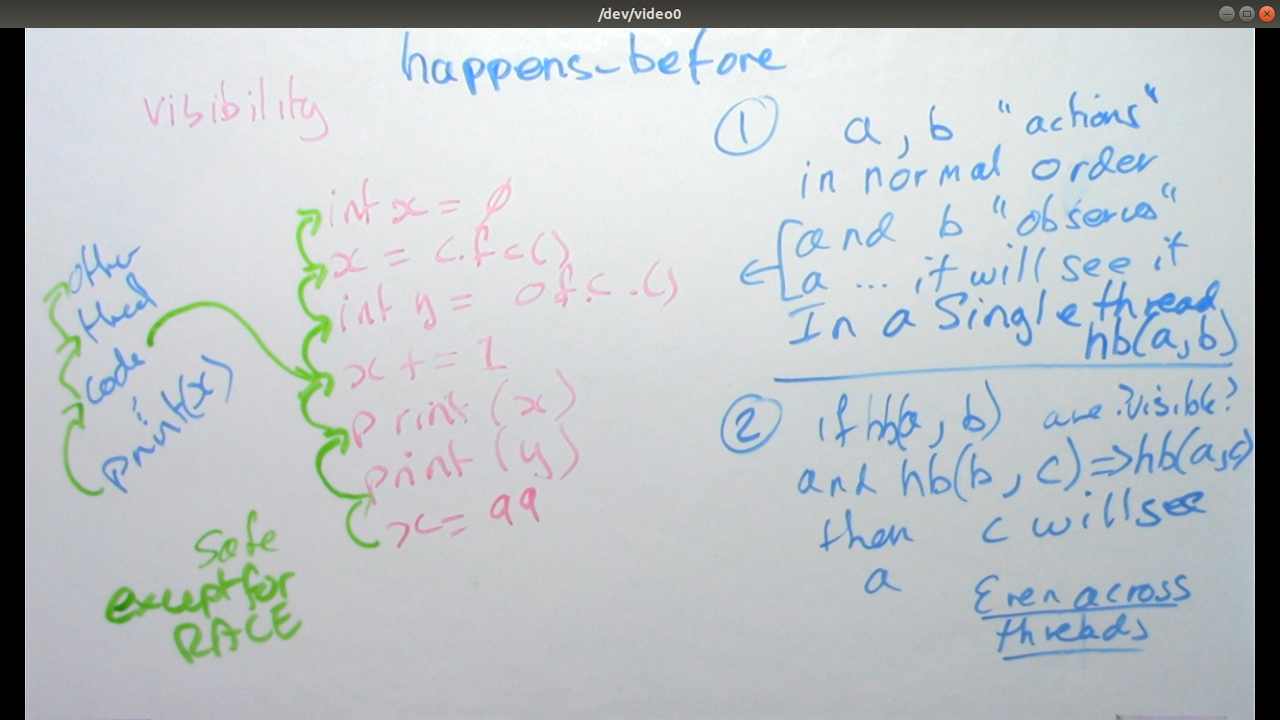 /dev/video0
happens-before
visibility
int x = 0
x = c.fc()
int y = ofc.()
x += 1
print (x)
print (y)
x = 99
other
thread
code
:
print(x)
Safe
except for
RACE
1 a, b "actions"
in normal order
and b "observes"
a ... it will see it
In a Single thread
hb(a,b)
2 if hb(a, b) are ?visible?
and hb(b, c) => hb(a,c)
then c will see
a
Even across
threads